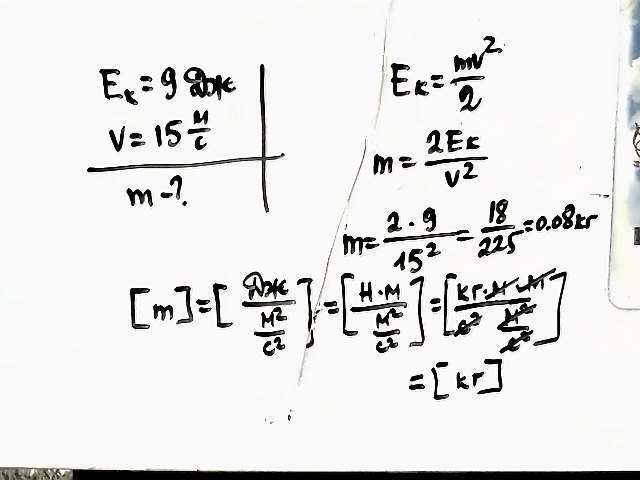 Eₖ = 9 Дж
V = 15 м/с
m - ?
Eₖ = mv²/2
m = 2Eк/V²
m = 2 · 9/15² = 18/225 = 0.08 кг
[m] = [Дж/(м²/с²)] = [Н·м/(м²/с²)] = [(кг·м·м/с²)/(м²/с²)]
= [кг]